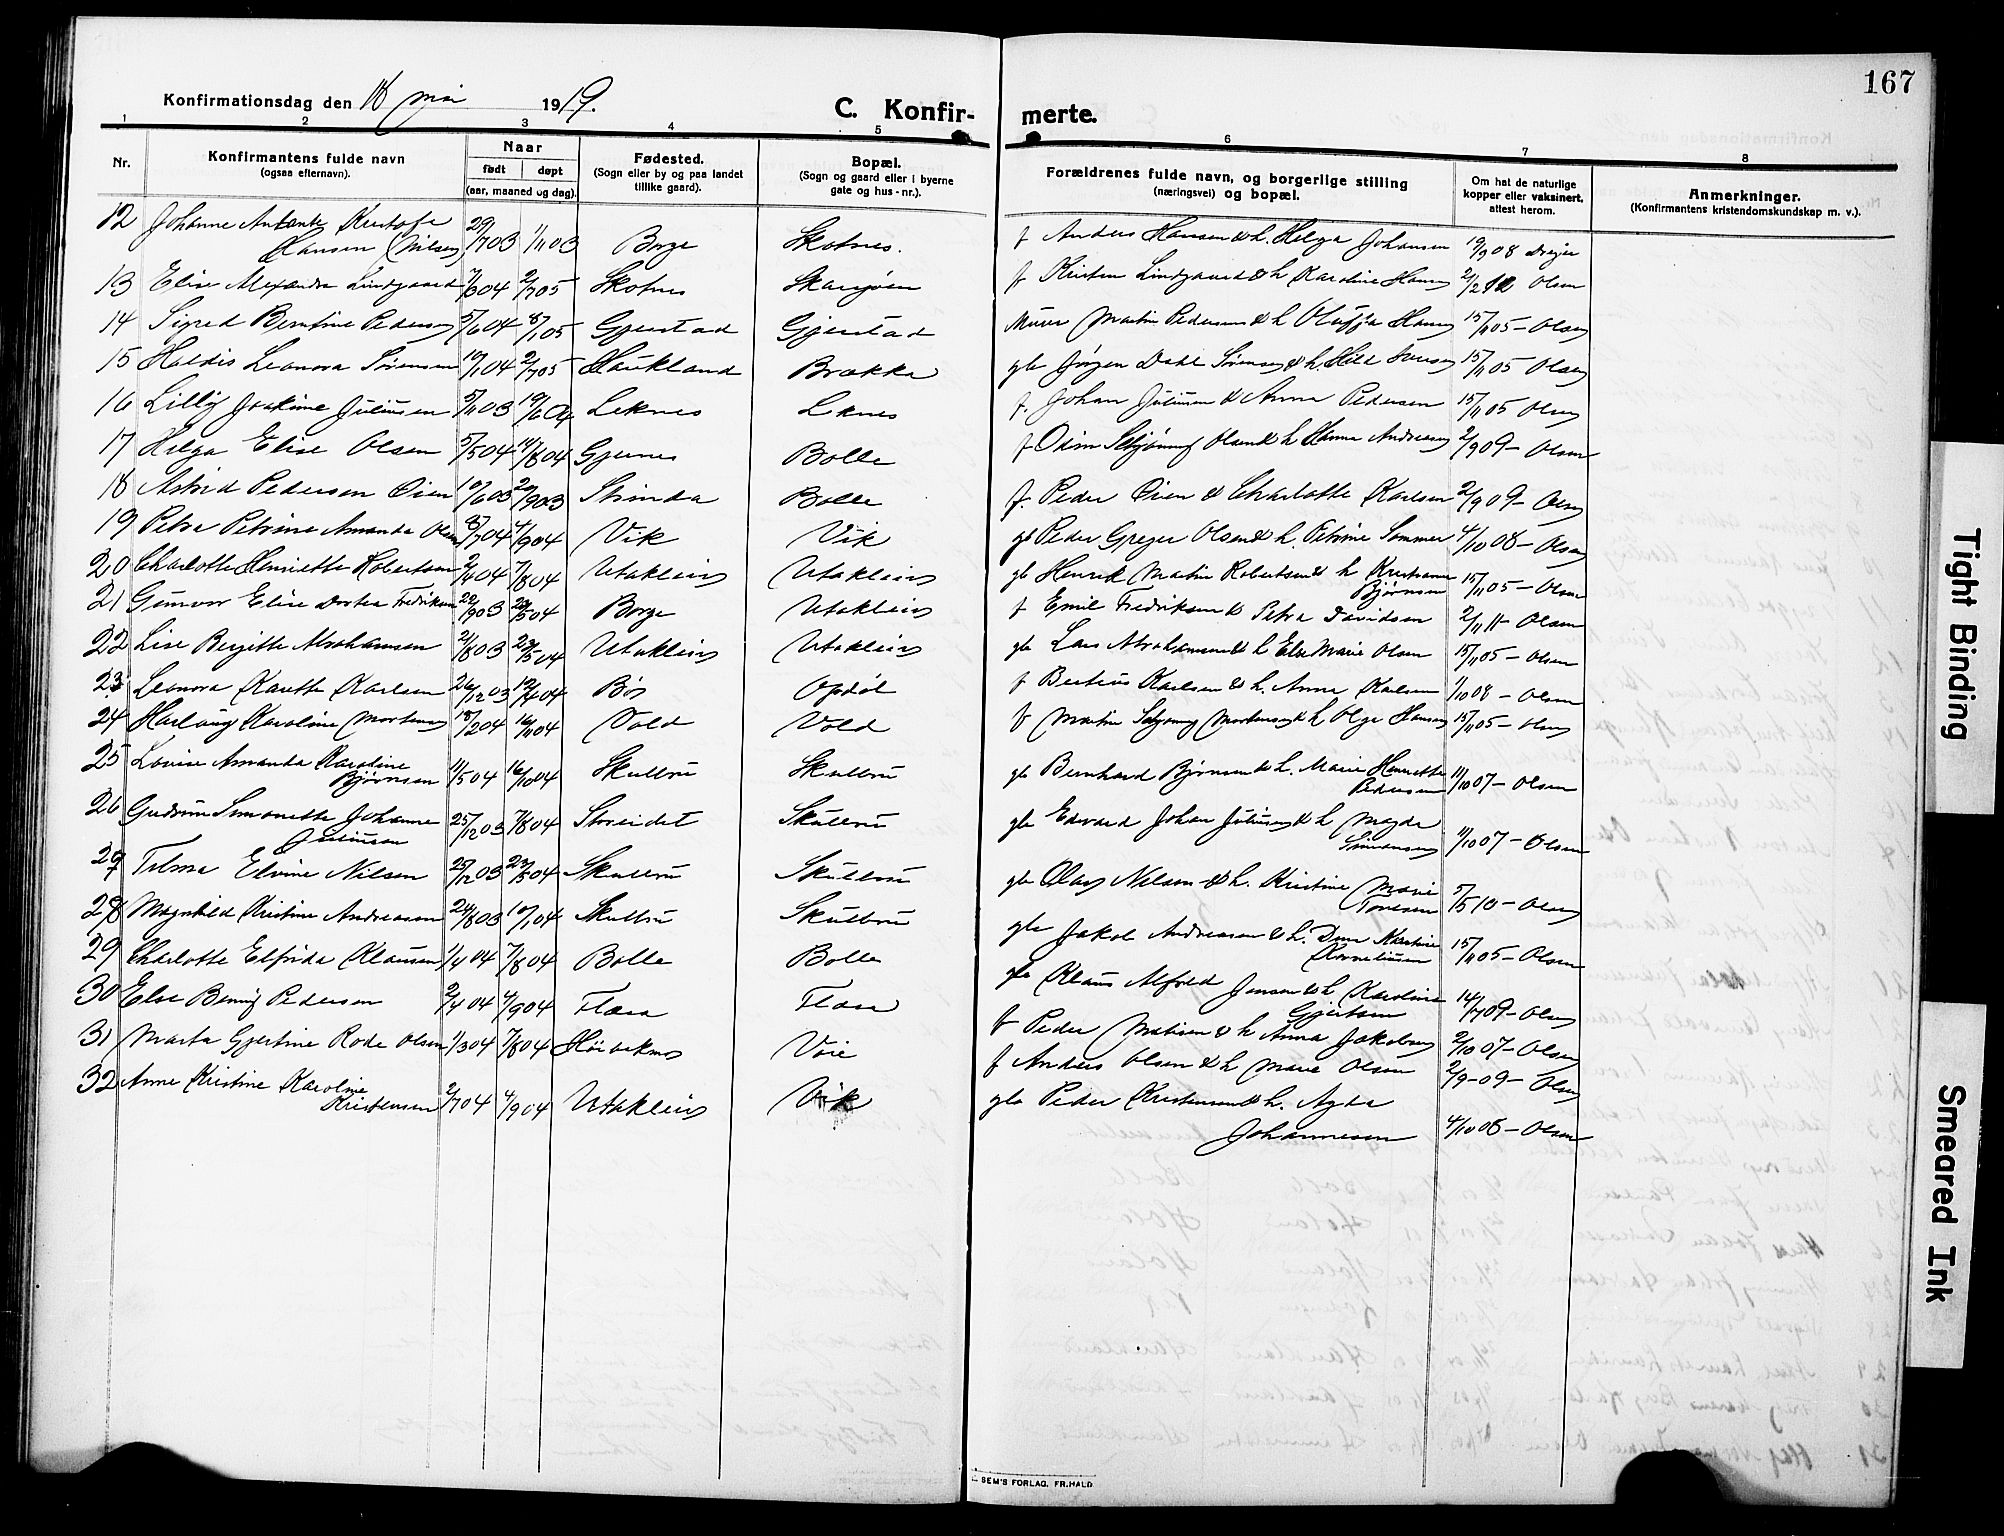 167
Konfirmationsdag den 18 mai 1919.
C. Konfir-
merte.
1 2 3 4 5 6 7 8
Nr.
Konfirmantens fulde navn
(ogsaa efternavn).
Naar
født døpt
(aar, maaned og dag).
Fødested.
(Sogn eller by og paa landet
tillike gaard).
Bopæl.
(Sogn og gaard eller i byerne
gate og hus-nr.).
Forældrenes fulde navn, og borgerlige stilling
(næringsvei) og bopæl.
Om hat de naturlige
kopper eller vaksinert,
attest herom.
Anmerkninger.
(Konfirmantens kristendomskundskap m. v.).
12 Johanne 29/7 03 1/11 03 Borge Skotnes. f Anders Hansen & h. Helga Johansen 19/9 08 Dreyer
Hansen (Nilsen)
13 Elise Alexandra Lindgaard 7/3 04 2/7 05 Skotnes f Kristen Lindgaard & h Karoline Hansen 2/2 12 Olsen
14 Sigred Berntine Pedersen 5/6 04 8/1 05 Gjerstad Gjerstad Murer Martin Pedersen & h Hansen 15/11 05 – Olsen
15 Haldis Leonora Sørensen 19/1 04 2/7 05 Haukland Brækka gb Jørgen Dahl Sørensen & h. 15/11 05 Olsen
16 Lilly Joakime Juliussen 5/11 03 19/6 04 Leknes Leknes f. Johan Juliussen & Anna Pedersen 15/11 05 Olsen
17 Helga Elise Olsen 5/5 04 14/8 04 Gjernes Bolle f Olsen & h Hanna Andreasen 2/9 09 – Olsen
18 Astrid Pedersen Øien 19/6 03 20/9 03 Strinda Bolle f. Peder Øien & Charlotte Karlsen 2/9 09 – Olsen
19 Petra Petrine Amanda Olsen 8/7 04 4/9 04 Vik Vik gb Peder Greger Olsen & h. Petrine Sommer 4/10 08 – Olsen
20 Charlotte Henriette Robertsen 2/4 04 7/8 04 Utakleiv Utakleiv gb Henrik Martin Robertsen & h Kristiane
Bjørnsen 15/11 05 – Olsen
21 Gunvor Elise Dortea Fredriksen 22/9 03 29/5 04 Borge Utakleiv f Emil Fredriksen & Petra Davidsen 2/11 11 – Olsen
22 Lise Bergitte Abrahamsen 21/8 03 29/5 04 Utakleiv Utakleiv gb Lars Abrahamsen & h Else Marie Olsen 15/11 05 – Olsen
23 Leonora Karlsen 26/12 03 12/4 04 Bø Opdøl f Berteus Karlsen & h. Anna Karlsen 1/10 08 – Olsen
24 Karoline Mortensen 18/2 04 16/11 04 Vold Vold f Martin Mortensen & h Olga Hansen 15/11 05 – Olsen
25 Lovise Amanda Karoline
Bjørnsen 11/5 04 16/10 04 Skulbru Skulbru gb Bernhard Bjørnsen & h. Marie Henriette
Pedersen 11/10 07 – Olsen
26 Gudrun Simonette Johanne
Juliussen 25/12 03 7/8 04 Storeidet Skulbru gb Edvard Johan Juliussen & h Magda
Simonsen 11/10 07 – Olsen
27 Telma Elvine Nilsen 25/12 03 23/5 04 Skulbru Skulbru gb Olav Nilsen & h. Kristine Marie
Tonesen 5/5 10 – Olsen
28 Magnhild Kristine Andreassen 24/8 03 10/1 04 Skulbru Skulbru gb Jakob Andreassen & h.
Kornelius­sen 15/11 05 – Olsen
29 Charlotte Elfrida Klausen 1/4 04 7/8 04 Bolle Bolle gb Klaus Alfred Jensen & h. Karoline
Gjertsen 14/7 09 – Olsen
30 Else Pedersen 2/4 04 4/9 04 Flæsa Flæsa f Peder Matisen & h Anna Jakobsen 2/10 07 – Olsen
31 Marta Gjertine Rode Olsen 1/3 04 7/8 04 Voie f Anders Olsen & h Marie Olsen 2/9 – 09 – Olsen
32 Anne Kristine Karoline
Kristensen 2/7 04 4/9 04 Utakleiv Vik gb Peder Kristensen & h. Agda
Johannesen 4/10 08 – Olsen
SEM'S FORLAG. FR.HALD
Tight Binding
Smeared Ink